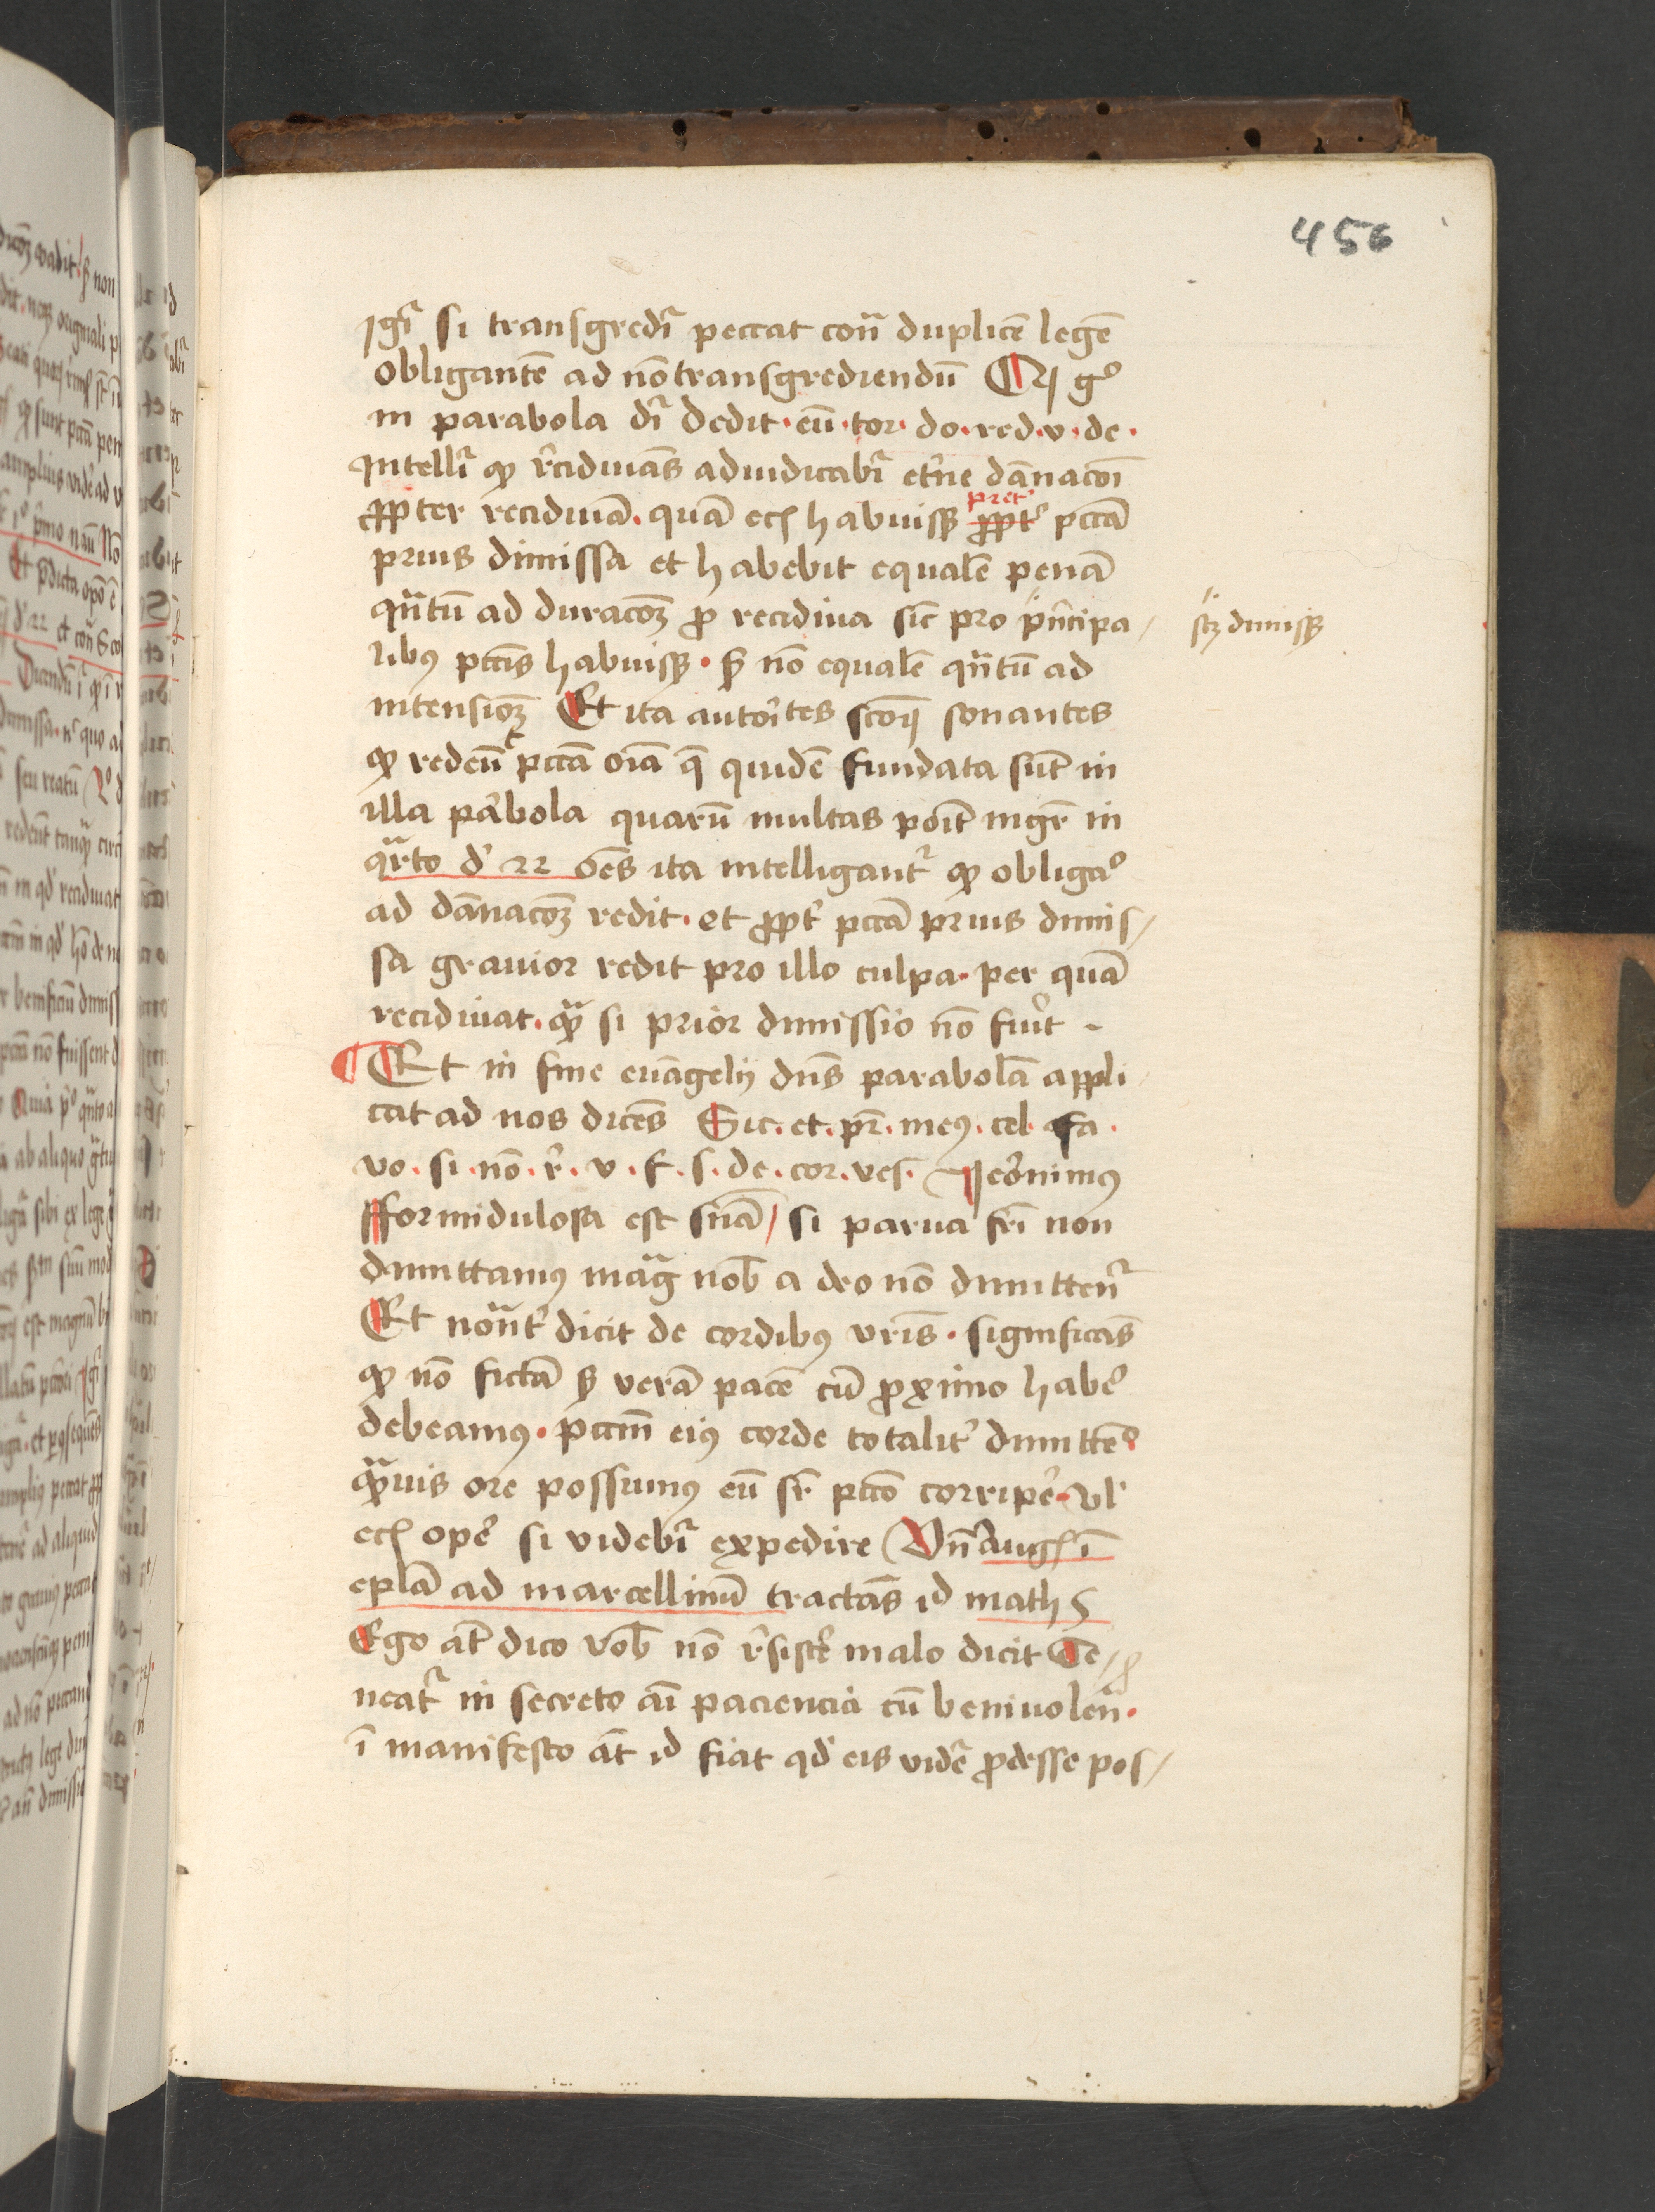 456
Igit̃ si transgredit̃ peccat cont̃ duplicẽ legẽ
obligantẽ ad nõ transgrediendũ Qꝫ gͦ
in parabola dr̃ dedit · eũ · tor · do · red · v · de ·
Intellr̃ ꝙ r̃cidiuãs adiudicabr̃ et̃ne dãnacõi
ꝓpter recidiuã · quã ecꝫ habuissꝫ pret̾ pctã
prius dimissa et habebit equalẽ penã
qñtũ ad duracõꝫ ꝓ recidiua sic̃ pro p̃ncipa
scꝫ dimissꝫ
libꝰ pctĩs habuissꝫ · sꝫ nõ equalẽ qñtũ ad
intensiõꝫ Et ita autoĩtes sctõꝝ sonantes
ꝙ redeũt pctã oĩa q̃ quidẽ fundata sũt in
illa pa̾bola quarũ multas põit mgr̃ in
qr̃to d̾ 22 õẽs ita intelligant̃ ꝙ obligaͦ
ad dãnacõꝫ redit · et ꝓpt̾ pctã prius dimis
sa grauior redit pro illo culpa · per quã
recidiuat · qᷓ si prior dimissio nõ fui̾t ·
Et in fine euãgelij dñs parabolã appli
cat ad nos dicẽs Sic · et · pr̃ · meꝰ · cel · fa ·
vo · si · nõ · r̾ · v · f · s · de · cor · ves · Jeronimꝰ
fformidulosa est sñia / si parua fr̃i non
dimittamꝰ magᷓ nob̃ a deo nõ dimitten̾t̃
Et notᷓnt̾ dicit de cordibꝰ vr̃is · significãs
ꝙ nõ fictã sꝫ verã pacẽ cũ ꝓximo habe̾
debeamꝰ · pctm̃ eiꝰ corde totalit̾ dimitte̾
qᷓuis ore possumꝰ eũ sr̃ pctõ corripe̾ · vl̾
ecꝫ ope̾ si videbit̃ expedire Vñ Augꝫ ĩ
eplã ad marcellinũ tractãs id math 5
Ego aũt dico vob̃ nõ r̾siste̾ malo dicit Te
neat̃ in secreto aĩ paciencia cũ beniuolen̾ ·
ĩ manifesto aũt id fiat qd̾ eis vidẽ ꝓdesse pos